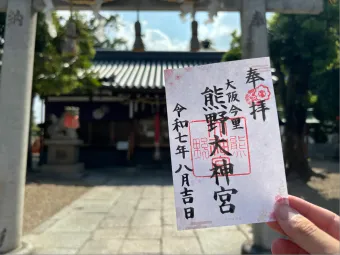 奉
納
奉
奉拝
大阪今里
熊野大神宮
令和七年八月吉日